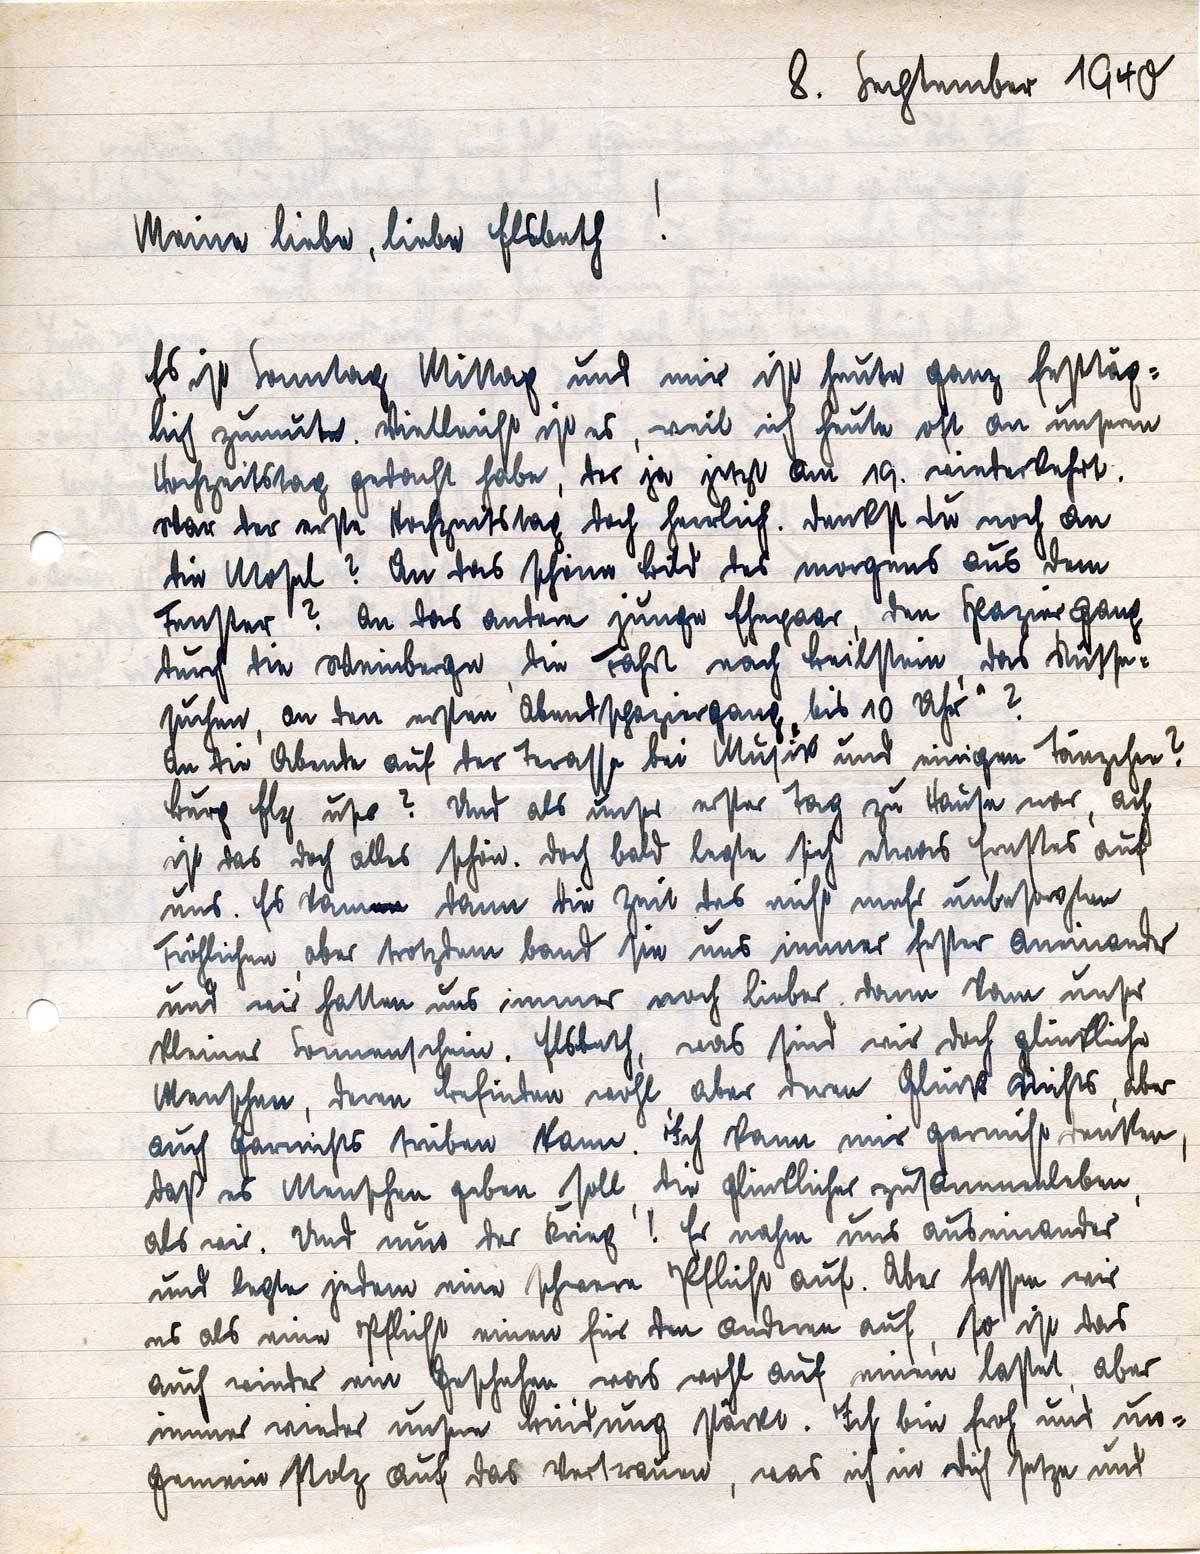 8. September 1940
Meine liebe, liebe Elsbeth !
Es ist Sonntag Mittag und mir ist heute ganz festtäg=
lich zumute. Vielleicht ist es, weil ich heute oft an unseren
Hochzeitstag gedacht habe, der ja jetzt am 19. wiederkehrt.
War der erste Hochzeitstag doch herrlich. Denkst du noch an
die Mosel ? An das schöne Bild des morgens aus dem
Fenster ? An das andere junge Ehepaar, den Spaziergang
durch die Weinberge, die Fahrt nach Beilstein, das Nüsse=
suchen, an den ersten Abendspaziergang „bis 10 Uhr" ?
An die Abende auf der Terasse bei Musik und einigen Tänzchen ?
Burg Elz usw ? Und als unser erster Tag zu Hause war, ach
ist das doch alles schön. Doch bald legte sich etwas Ernstes auf
uns. Es kam dann die Zeit des nicht mehr unbesorgten
Fröhlichen, aber trotzdem band sie uns immer fester aneinander
und wir hatten uns immer noch lieber. Dann kam unser
kleiner Sonnenschein. Elsbeth, was sind wir doch glückliche
Menschen, deren Befinden wohl aber deren Glück Nichts, aber
auch Garnichts trüben kann. Ich kann mir garnicht denken,
daß es Menschen geben soll, die glücklicher zusammenleben,
als wir. Und nun der Krieg ! Er nahm uns auseinander
und legte jedem eine schwere Pflicht auf. Aber fassen wir
es als eine Pflicht einen für den anderen auf, so ist das
auch wieder ein Geschehen, was wohl auf einem lastet, aber
immer wieder unsere Bindung stärkt. Ich bin froh und un=
gemein stolz auf das Vertrauen, was ich in dich setze und